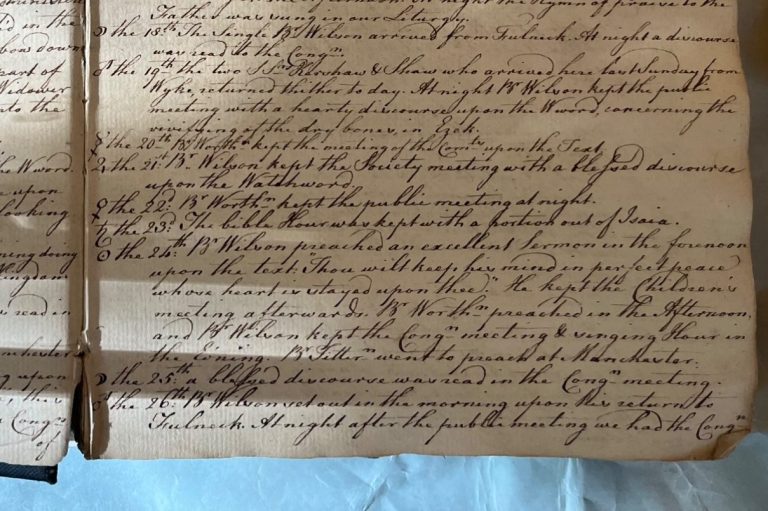 Father was sung in our Liturgy.
☽ the 18th. The Single Br. Wilson arrived from Fulneck. At night a discourse
was read to the Congn.
♂ the 19th the two Srs. Kershaw & Shaw who arrived here last Sunday from
Wyke, returned thither to day. At night Br. Wilson kept the public
meeting with a hearty discourse upon the Wword, concerning the
vivifying of the dry bones, in Ezek.
☿ the 20th. Br. Worthn. kept the meeting of the Comts. upon the Text.
♃ the 21st: Br. Wilson kept the Society meeting with a blessed discourse
upon the Watchword.
♀ the 22d: Br. Worthn. kept the public meeting at night.
♄ the 23d. The bible Hour was kept with a portion out of Isaia.
☉ the 24th Br. Wilson preached an excellent Sermon in the forenoon
upon the text: "Thou wilt keep his mind in perfect peace
whose heart is stayed upon thee." He kept the Children's
meeting afterwards. Br. Worthn. preached in the Afternoon,
and Br. Wilson kept the Congn. meeting & singing Hour in
the Evning. Br. went to preach at Manchester.
☽ the 25th: a blessed discourse was read in the Congn. meeting.
♂ the 26th: Br. Wilson set out in the morning upon his return to
Fulneck. At night after the public meeting we had the Congn.
bow down
part of
Widower
into the
the Wword.
upon
looking
doing
read in
upon
this
Congn.
of